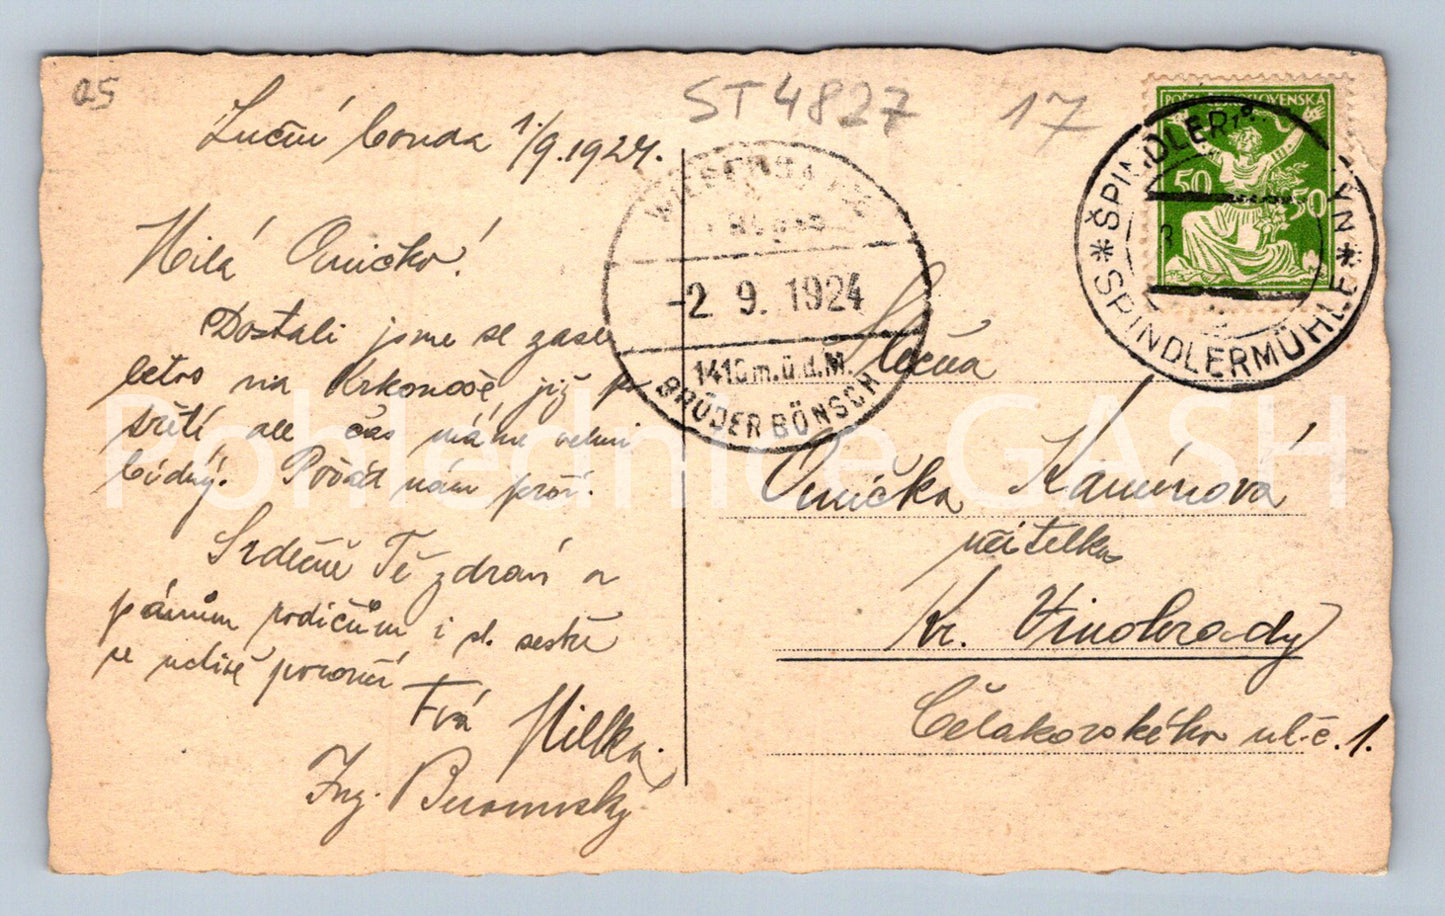 05
ST4827
17
Luční bouda 1./9.1924.
Milá Aničko!
Dostali jsme se zase
letos na Krkonoše, již po
třetí, ale čas máme velmi
bídný. Pořád nám prší.
Srdečně Tě zdraví a
pánům rodičům i sl. sestře
se uctivě poroučí
Tvá Milka.
Ing.
WIESENBAUDE
-2. 9. 1924
1410 m.ü.d.M.
BRÜDER BÖNSCH
POŠTA ČESKOSLOVENSKÁ
50 50
ŠPINDLERŮV MLÝN
* SPINDLERMÜHLE *
Slečna
Anička Kamínová
učitelka
Kr. Vinohrady
Čelakovského ul. č. 1.
Pohlednice GASH